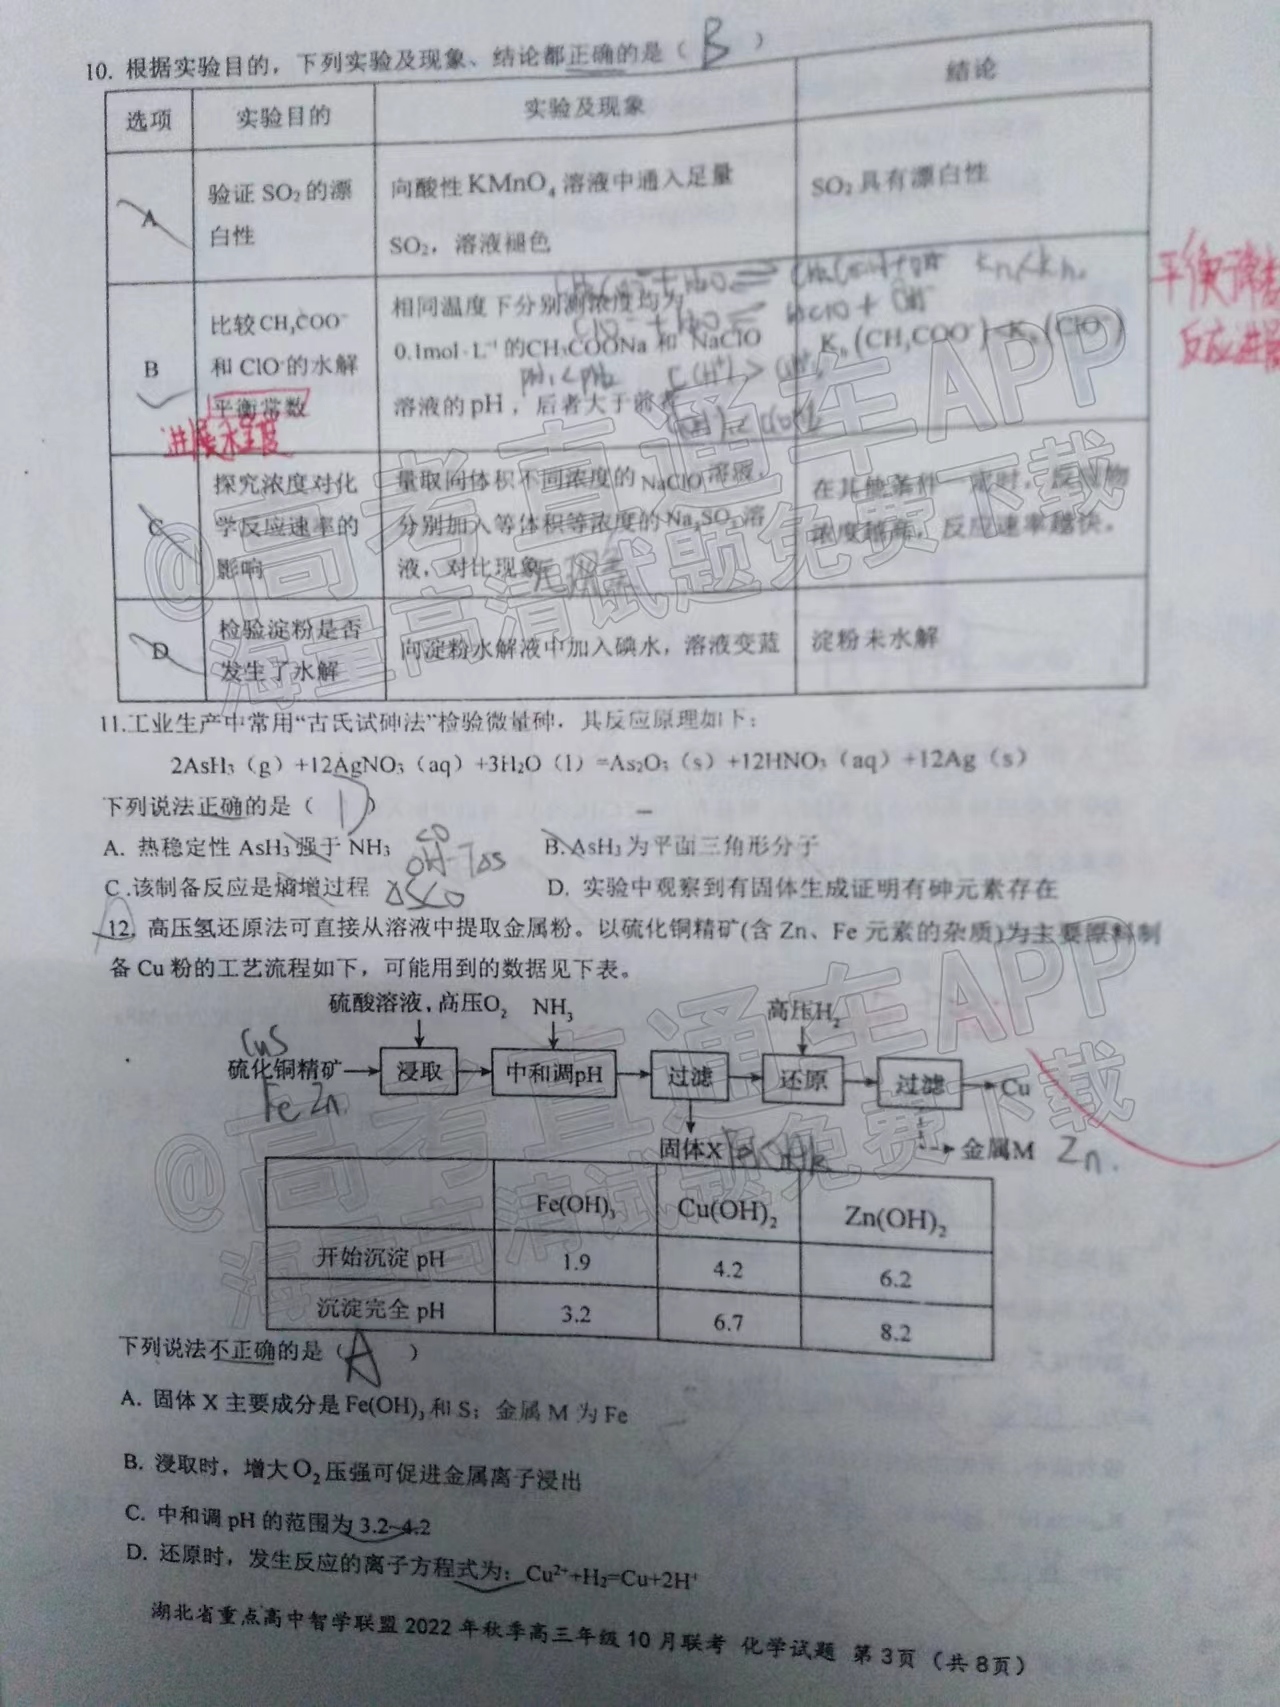 10. 根据实验目的，下列实验及现象、结论都正确的是（ B ）
选项 实验目的 实验及现象 结论
A 验证 SO₂的漂白性 向酸性 KMnO₄ 溶液中通入足量 SO₂，溶液褪色 SO₂具有漂白性
B 比较 CH₃COO⁻和 ClO⁻的水解平衡常数 相同温度下分别测浓度均为 0.1mol·L⁻¹ 的CH₃COONa 和 NaClO 溶液的 pH，后者大于前者 Kₕ(CH₃COO⁻)<Kₕ(ClO⁻)
平衡常数
进度
C 探究浓度对化学反应速率的影响 量取同体积不同浓度的 NaClO 溶液，分别加入等体积等浓度的 Na₂SO₃ 溶液，对比现象 在其他条件一定时，反应物浓度越高，反应速率越快。
无现象
D 检验淀粉是否发生了水解 向淀粉水解液中加入碘水，溶液变蓝 淀粉未水解
11.工业生产中常用“古氏试砷法”检验微量砷，其反应原理如下：
2AsH₃（g）+12AgNO₃（aq）+3H₂O（l）=As₂O₃（s）+12HNO₃（aq）+12Ag（s）
下列说法正确的是（ D ）
A. 热稳定性 AsH₃ 强于 NH₃ B. AsH₃ 为平面三角形分子
C .该制备反应是熵增过程 ΔS<0 D. 实验中观察到有固体生成证明有砷元素存在
12. 高压氢还原法可直接从溶液中提取金属粉。以硫化铜精矿(含 Zn、Fe 元素的杂质)为主要原料制
备 Cu 粉的工艺流程如下，可能用到的数据见下表。
硫酸溶液，高压O₂ NH₃ 高压H₂
CuS
硫化铜精矿 浸取 中和调pH 过滤 还原 过滤 Cu
Fe Zn
固体X Fe(OH)₃ 金属M Zn.
Fe(OH)₃ Cu(OH)₂ Zn(OH)₂
开始沉淀 pH 1.9 4.2 6.2
沉淀完全 pH 3.2 6.7 8.2
下列说法不正确的是（ A ）
A. 固体 X 主要成分是 Fe(OH)₃ 和 S；金属 M 为 Fe
B. 浸取时，增大 O₂ 压强可促进金属离子浸出
C. 中和调 pH 的范围为 3.2~4.2
D. 还原时，发生反应的离子方程式为：Cu²⁺+H₂=Cu+2H⁺
湖北省重点高中智学联盟 2022 年秋季高三年级 10 月联考 化学试题 第 3页（共 8页）
@高考直通车APP
海量高清试题免费下载
@高考直通车APP
海量高清试题免费下载